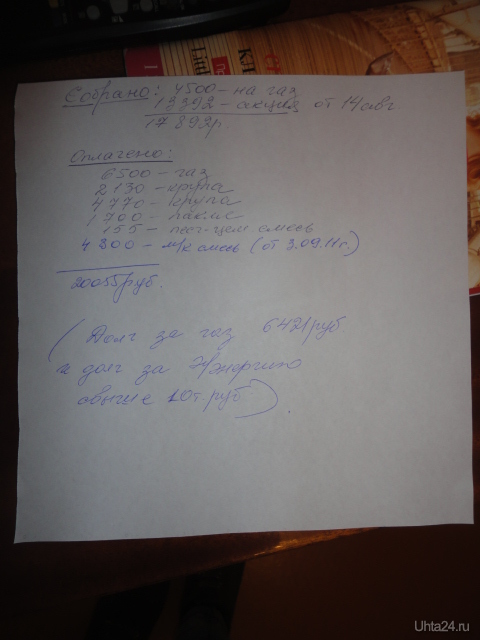 Собрано: 4500 - на газ
13392 - акция от 14 авг.
17 892р.
Оплачено:
6500 - газ
2130 - крупа
4770 - крупа
1700 -
155 - песч-цем смесь
4800 - м/к смесь (от 3.09.11г.)
20055руб.
(Долг за газ 6421руб
и долг за
свыше 10т.руб).
Uhta24.ru